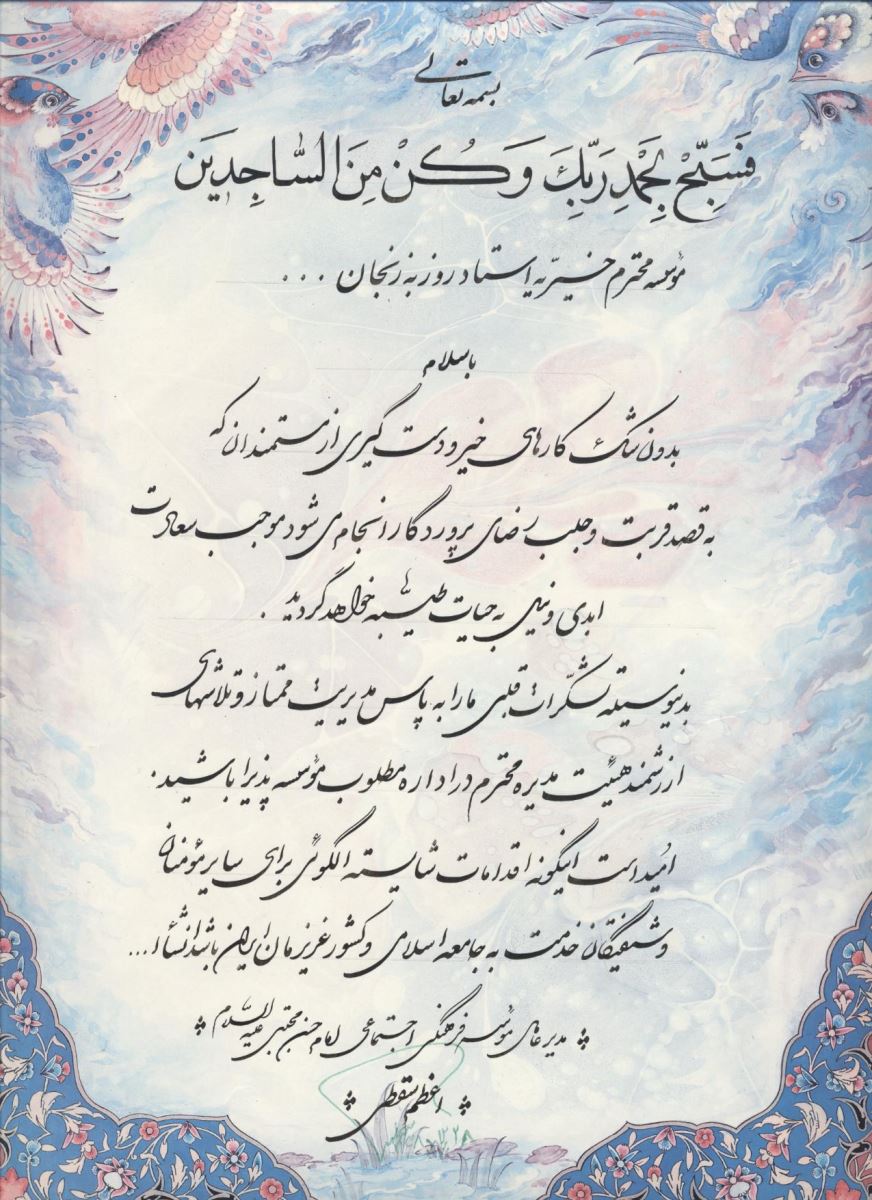 بسمه تعالی
فَسَبِّحْ بِحَمْدِ رَبِّكَ وَكُنْ مِنَ السَّاجِدِينَ
مؤسسه محترم خیریّه استاد روزبه زنجان ...
با سلام
بدون شک کارهای خیر و دست گیری از مستمندان که
به قصد قربت و جلب رضای پروردگار انجام می شود موجب سعادت
ابدی و نیل به حیات طیّبه خواهد گردید.
بدینوسیله تشکّرات قلبی ما را به پاس مدیریت ممتاز و تلاشهای
ارزشمند هیئت مدیره محترم در اداره مطلوب مؤسسه پذیرا باشید.
امید است اینگونه اقدامات شایسته الگوئی برای سایر مؤمنان
و شیفتگان خدمت به جامعه اسلامی و کشور عزیزمان ایران باشد انشاء ا...
مدیرعامل مؤسسه فرهنگی اجتماعی امام حسن مجتبی علیه السلام
اعظم سقطی